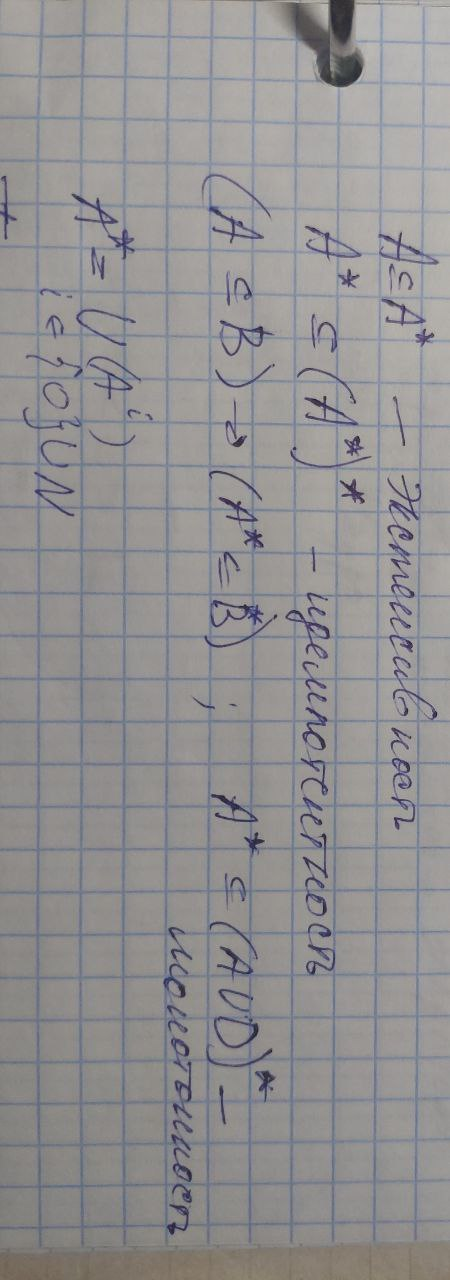 A ⊆ A* — Экстенсивность
A* ⊆ (A*)* - идемпотентность
(A ⊆ B) → (A* ⊆ B*) ; A* ⊆ (A∪D)* —
монотонность
A* = ∪(Aⁱ)
i ∈ {0}∪N